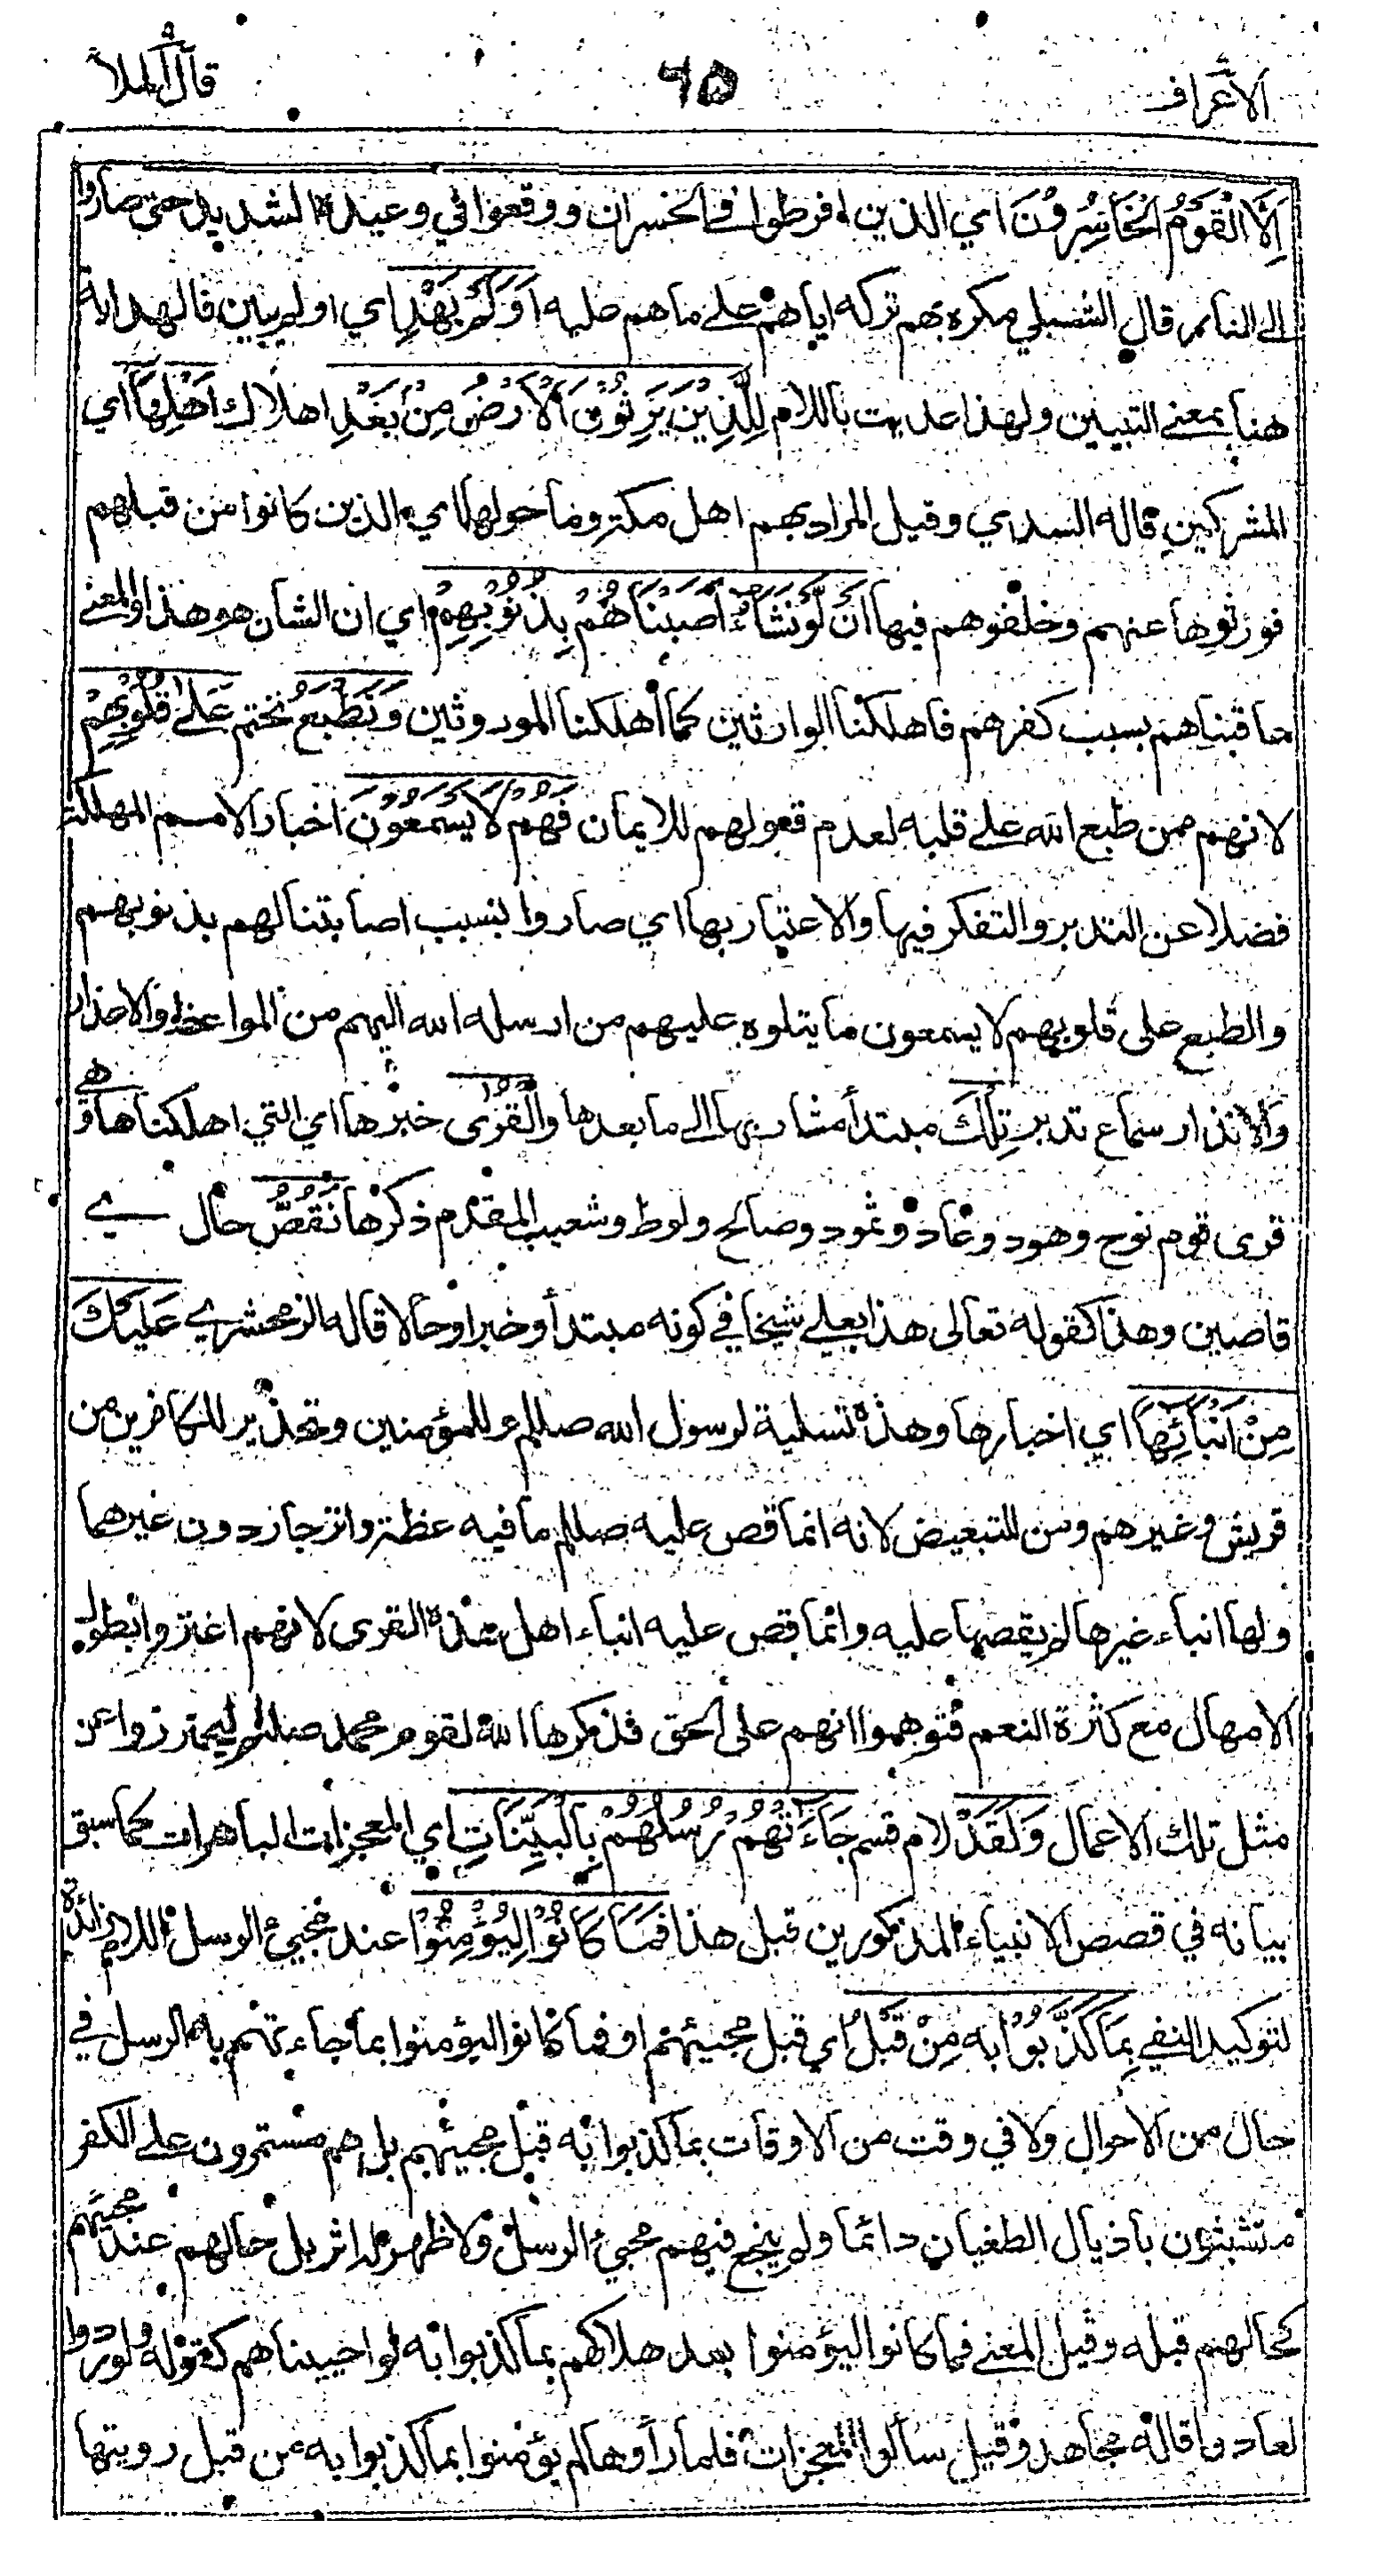 الاعراف ٦٥ قال الملأ
اِلَّا الْقَوْمُ الْخَاسِرُوْنَ اي الذين افرطوا في الخسران ووقعوا في وعيده الشديد حتى صاروا
الى النار قال الشبلي مكره بهم تركه اياهم على ما هم عليه اَوَلَمْ يَهْدِ اي اولم يبين فالهداية
هنا بمعنى التبيين ولهذا عديت باللام لِلَّذِيْنَ يَرِثُوْنَ الْاَرْضَ مِنْ بَعْدِ اهلاك اَهْلِهَا اي
المشركين قاله السدي وقيل المراد بهم اهل مكة وما حولها اي الذين كانوا من قبلهم
فورثوها عنهم وخلفوهم فيها اَنْ لَّوْ نَشَاءُ اَصَبْنَاهُمْ بِذُنُوْبِهِمْ اي ان الشان هو هذا والمعنى
عاقبناهم بسبب كفرهم فاهلكنا الوارثين كما أهلكنا الموروثين وَنَطْبَعُ نختم عَلٰى قُلُوْبِهِمْ
لانهم ممن طبع الله على قلبه لعدم قبولهم للايمان فَهُمْ لَا يَسْمَعُوْنَ اخبار الامم المهلكة
فضلا عن التدبر والتفكر فيها والاعتبار بها اي صاروا بسبب اصابتنا لهم بذنوبهم
والطبع على قلوبهم لا يسمعون ما يتلوه عليهم من ارسله الله اليهم من المواعظ والاعذار
والانذار سماع تدبر تِلْكَ مبتدأ مشار بها الى ما بعدها والْقُرٰى خبرها اي التي اهلكناها وهي
قرى قوم نوح وهود وعاد وثمود وصالح ولوط وشعيب المتقدم ذكرها نَقُصُّ حال اي
قاصين وهذا كقوله تعالى هذا بعلي شيخا في كونه مبتدأ وخبرا وحالا قاله الزمخشري عَلَيْكَ
مِنْ اَنْبَائِهَا اي اخبارها وهذه تسلية لرسول الله صللم وللمؤمنين وتحذير للكافرين من
قريش وغيرهم ومن للتبعيض لانه انما قص عليه صللم ما فيه عظة وانزجار دون غيرهما
ولها انباء غيرها لم يقصها عليه وانما قص عليه انباء اهل هذه القرى لانهم اغتروا بطول
الامهال مع كثرة النعم فتوهموا انهم على الحق فذكرها الله لقوم محمد صللم ليحترزوا عن
مثل تلك الاعمال وَلَقَدْ لام قسم جَاءَتْهُمْ رُسُلُهُمْ بِالْبَيِّنَاتِ اي المعجزات الباهرات كما سبق
بيانه في قصص الانبياء المذكورين قبل هذا فَمَا كَانُوْا لِيُؤْمِنُوْا عند مجيئ الرسل اللام زائدة
لتوكيد النفي بِمَا كَذَّبُوْا به مِنْ قَبْلُ اي قبل مجيئهم او فما كانوا ليؤمنوا بما جاءتهم به الرسل في
حال من الاحوال ولا في وقت من الاوقات بما كذبوا به قبل مجيئهم بل هم مستمرون على الكفر
متشبثون باذيال الطغيان دائما ولم ينجع فيهم مجيئ الرسل ولا ظهر له اثر بل حالهم عند مجيئهم
كحالهم قبله وقيل المعنى فما كانوا ليؤمنوا بعد هلاكهم بما كذبوا به لو احييناهم كقوله ولو ردوا
لعادوا قاله مجاهد وقيل سألوا المعجزات فلما رأوها لم يؤمنوا بما كذبوا به من قبل رويتها